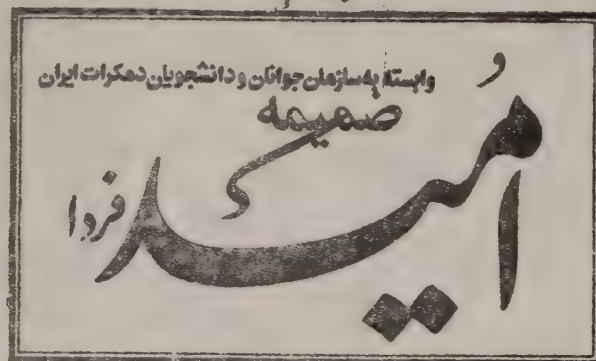 وابسته به سازمان جوانان و دانشجویان دمکرات ایران
ضمیمه
اُمید
فردا